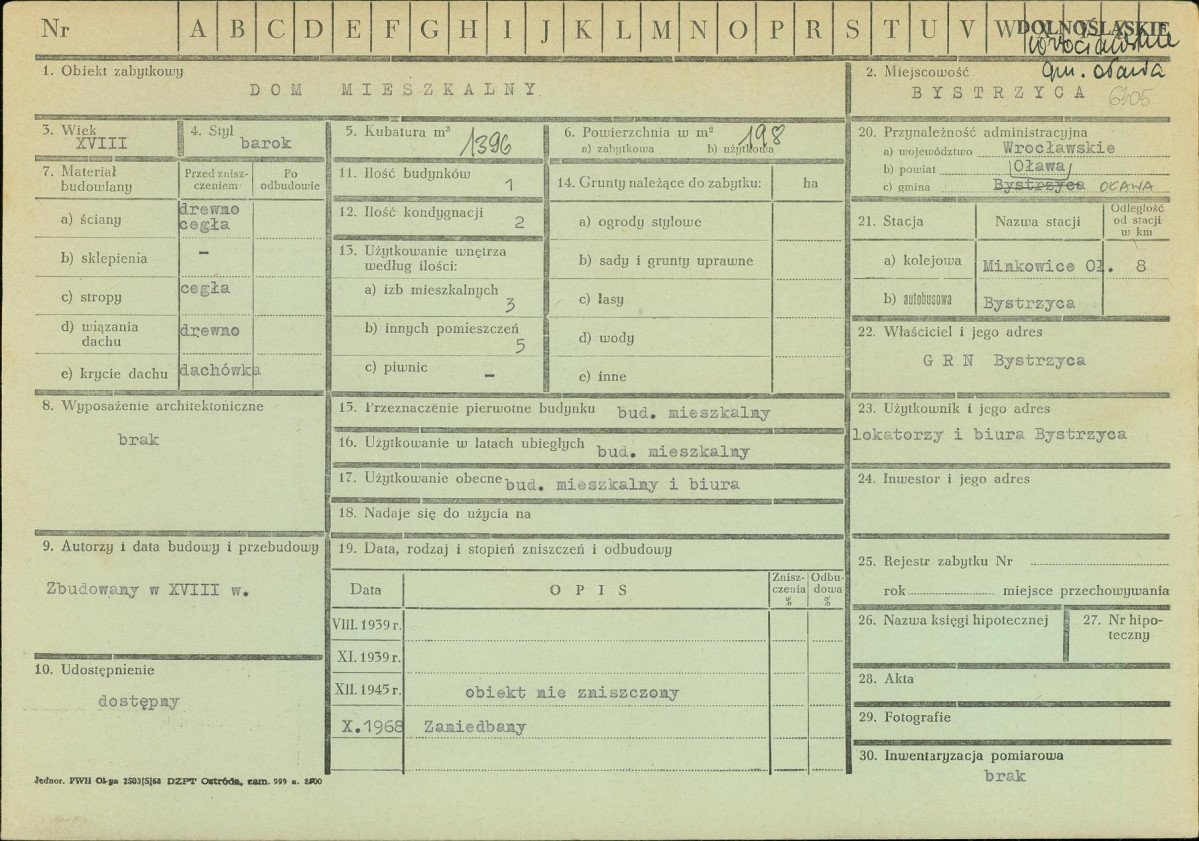 Nr A B C D E F G H I J K L M N O P R S T U V W
DOLNOŚLĄSKIE
wrocławskie
gm. Oława
1. Obiekt zabytkowy
DOM MIESZKALNY
2. Miejscowość
BYSTRZYCA
6405
3. Wiek
XVIII
4. Styl
barok
5. Kubatura m³
1396
6. Powierzchnia w m²
198
a) zabytkowa b) użytkowa
7. Materiał budowlany
Przed zniszczeniem
Po odbudowie
a) ściany
drewno
cegła
b) sklepienia
–
c) stropy
cegła
d) wiązania dachu
drewno
e) krycie dachu
dachówka
11. Ilość budynków
1
12. Ilość kondygnacji
2
13. Użytkowanie wnętrza
według ilości:
a) izb mieszkalnych
3
b) innych pomieszczeń
5
c) piwnic
–
14. Grunty należące do zabytku: ha
a) ogrody stylowe
b) sady i grunty uprawne
c) lasy
d) wody
e) inne
20. Przynależność administracyjna
a) województwo Wrocławskie
b) powiat Oława
c) gmina Bystrzyca OŁAWA
21. Stacja
Nazwa stacji
Odległość
od stacji
w km
a) kolejowa Minkowice Oł. 8
b) autobusowa Bystrzyca
22. Właściciel i jego adres
G R N Bystrzyca
8. Wyposażenie architektoniczne
brak
15. Przeznaczenie pierwotne budynku bud. mieszkalny
16. Użytkowanie w latach ubiegłych bud. mieszkalny
17. Użytkowanie obecne bud. mieszkalny i biura
18. Nadaje się do użycia na
23. Użytkownik i jego adres
lokatorzy i biura Bystrzyca
24. Inwestor i jego adres
9. Autorzy i data budowy i przebudowy
Zbudowany w XVIII w.
10. Udostępnienie
dostępny
19. Data, rodzaj i stopień zniszczeń i odbudowy
Data
OPIS
Zniszczenia
%
Odbudowa
%
VIII. 1939 r.
XI. 1939 r.
XII. 1945 r. obiekt nie zniszczony
X.1968 Zaniedbany
25. Rejestr zabytku Nr
rok miejsce przechowywania
26. Nazwa księgi hipotecznej
27. Nr hipoteczny
28. Akta
29. Fotografie
30. Inwentaryzacja pomiarowa
brak
Jednor. PWH Ol-ga 2503/S/68 DZPT Ostróda, zam. 999 n.